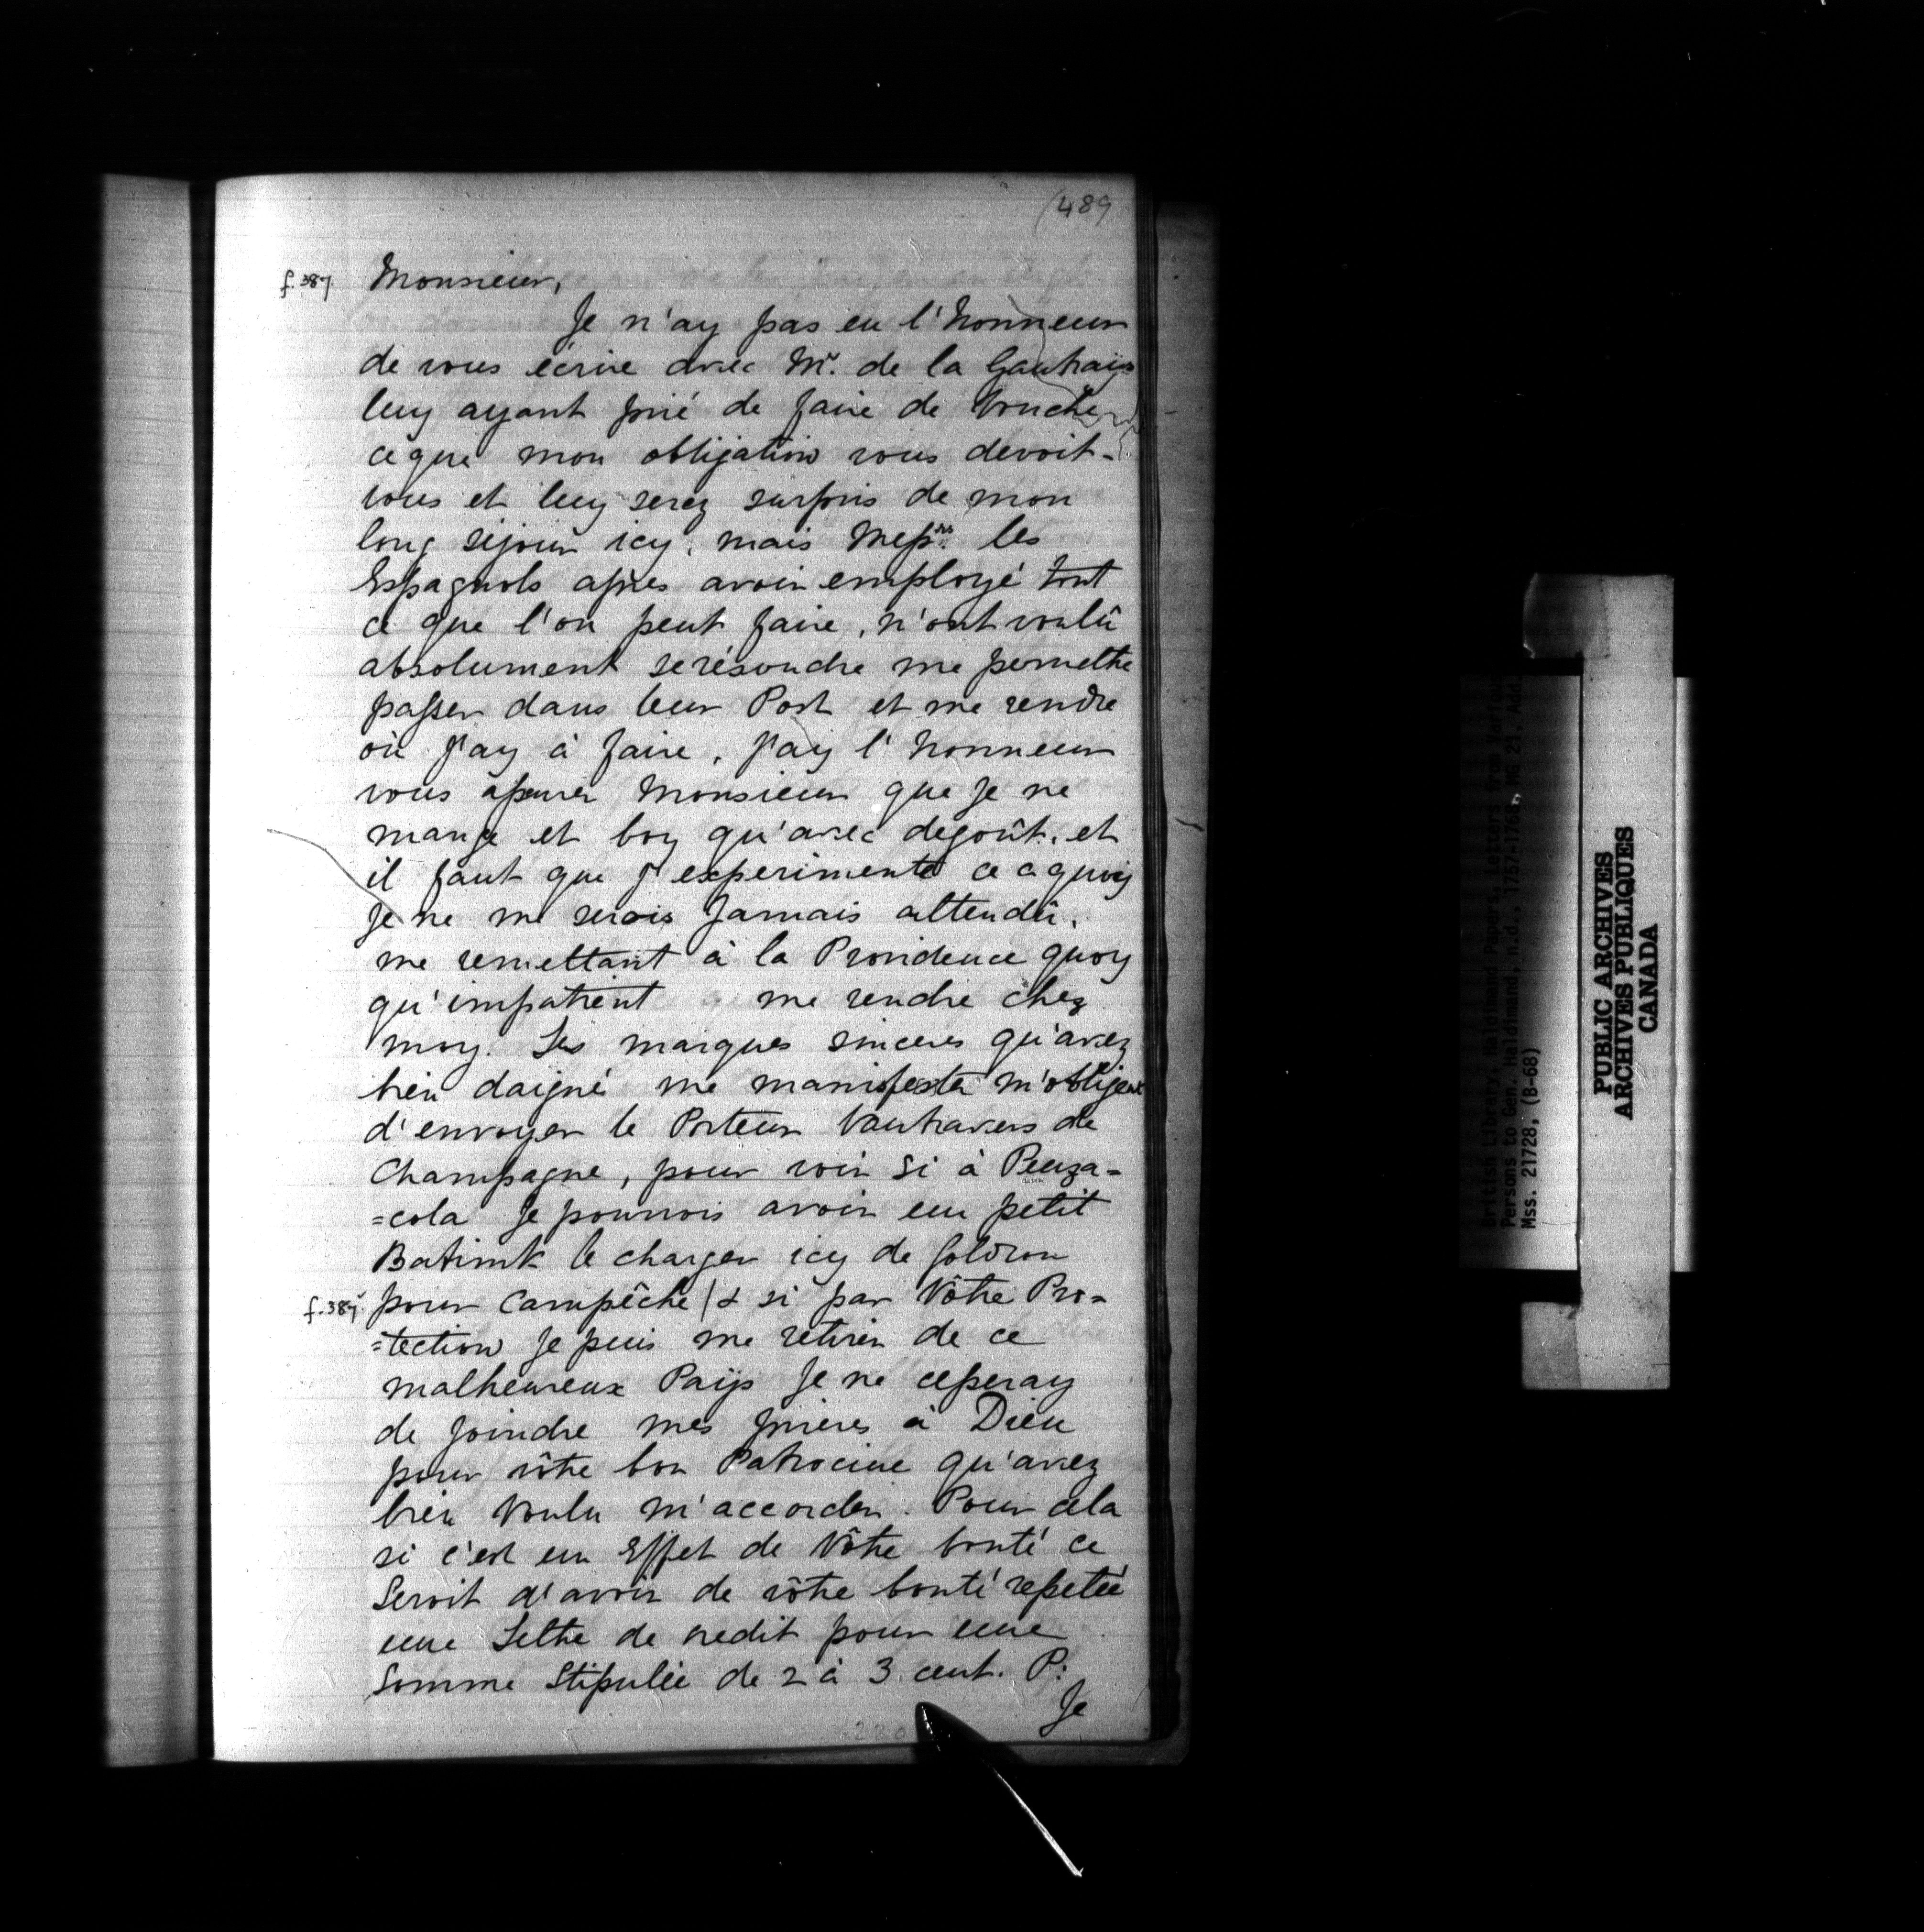 (489
f. 387. Monsieur,
Je n'ay pas eu l'honneur
de vous écrire avec Mr. de la Gautrais
luy ayant prié de faire de bouche
ce que mon obligation vous devoit.
vous et luy serez surpris de mon
long séjour icy, mais Messrs. les
Espagnols après avoir employé tout
ce que l'on peut faire, n'ont voulû
absolument se résoudre me permettre
passer dans leur Port et me rendre
où J'ay à faire, J'ay l'honneur
vous assurer Monsieur que Je ne
mange et boy qu'avec degoût, et
il faut que J'experimente ce a quoy
Je ne me serois Jamais attendû,
me remettant à la Providence quoy
qu'impatient me rendre chez
moy. Les marques sinceres qu'avez
bien daigné me manifester m'obligent
d'envoyer le Porteur Vautravers de
Champagne, pour voir Si à Penza=
=cola Je pourrois avoir un petit
Batimt. le charger icy de Goldron
f. 387v pour Campêche / & si par Vôtre Pro=
=tection Je puis me retirer de ce
malheureux Païs Je ne cesseray
de Joindre mes prières à Dieu
pour vôtre bon Patrocine qu'avez
bien Voulu m'accorder. Pour cela
si c'est un Effet de Vôtre bonté ce
Seroit d'avoir de vôtre bonté repetée
une Lettre de credit pour une
Somme Stipulée de 2 à 3 cent. P:
Je
220
British Library, Haldimand Papers, Letters from Various
Persons to Gen. Haldimand, n.d., 1757-1768, MG 21, Add.
Mss. 21728, (B-68)
PUBLIC ARCHIVES
ARCHIVES PUBLIQUES
CANADA